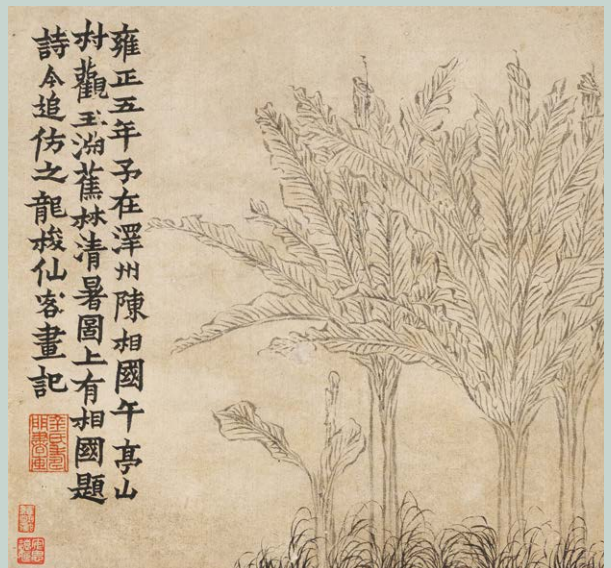 雍正五年予在澤州陳相國午亭山
村觀王泐蕉林清暑圖上有相國題
詩今追仿之龍梭仙客畫記